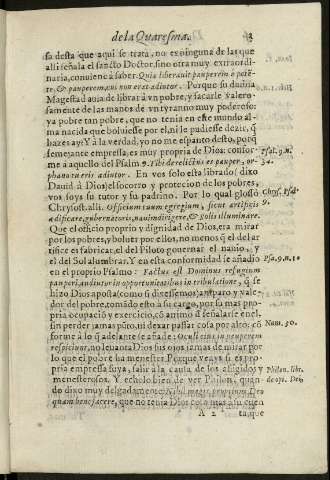 de la Quaresma. 3
sa desta que aqui se trata, no es ninguna de las que
alli señala el sancto Doctor, sino otra muy extraordi-
naria, conuiene à saber. Quia liberauit pauperem à potẽ-
te, & pauperem, cui non erat adiutor. Porque su diuina
Magestad auia de librar à vn pobre, y sacarle valero-
samente de las manos de vn tyranno muy poderoso:
ya pobre tan pobre, que no tenia en este mundo al-
ma nacida que boluiesse por el, ni le pudiesse dezir, q̃
hazes ay? Y à la verdad, yo no me espanto desto, porq̃
semejante empressa, es muy propria de Dios: confor-
me à aquello del Psalm 9. Tibi derelictus est pauper, or-
phano tu eris adiutor. En vos solo esta librado (dixo
Dauid à Dios) el socorro y protecion de los pobres,
vos soys su tutor y su padrino. Por lo qual glossò
Chrysost. alli. Officium tuum egregium, sicut artificis
ædificare, gubernatoris, nauim dirigere, & solis illuminare.
Que el officio proprio y dignidad de Dios, era mirar
por los pobres, y boluer por ellos, no menos q̃ el del ar
tifice es fabricar, el del Piloto gouernar el nauio, y
el del Sol alumbrar. Y en esta conformidad se añadio
en el proprio Psalmo: Factus est Dominus refugium
pauperi, adiutor in opportunitatibus in tribulatione, q̃ se
hizo Dios aposta (como si dixessemos) amparo y vale-
dor del pobre, tomãdo esto à su cargo, por su mas pro-
pria ocupaciõ y exercicio, cõ animo d̃ señalarse en el,
sin perder jamas pũto, ni dexar passar cosa por alto: cõ
forme à lo q̃ adelante se añade: Oculi eius in pauperem
respiciunt, no leuanta Dios los ojos jamas de mirar por
lo que el pobre ha menester. Porque veays si es expro-
pria empressa suya, salir à la causa de los afligidos y
menesterosos. Y echolo bien de ver Philon, quan-
do dixo muy delgadamente: Nihil mobilius proprium Deo
quam benefacere, que no tenia Dios cosa mas a su cuen
A 2 ta, que
Psal. 9. n.
34.
Chrys. Psal.
9.
Psa. 9. n. 10
Num. 30.
Philon. libr.
de opi. Dei,